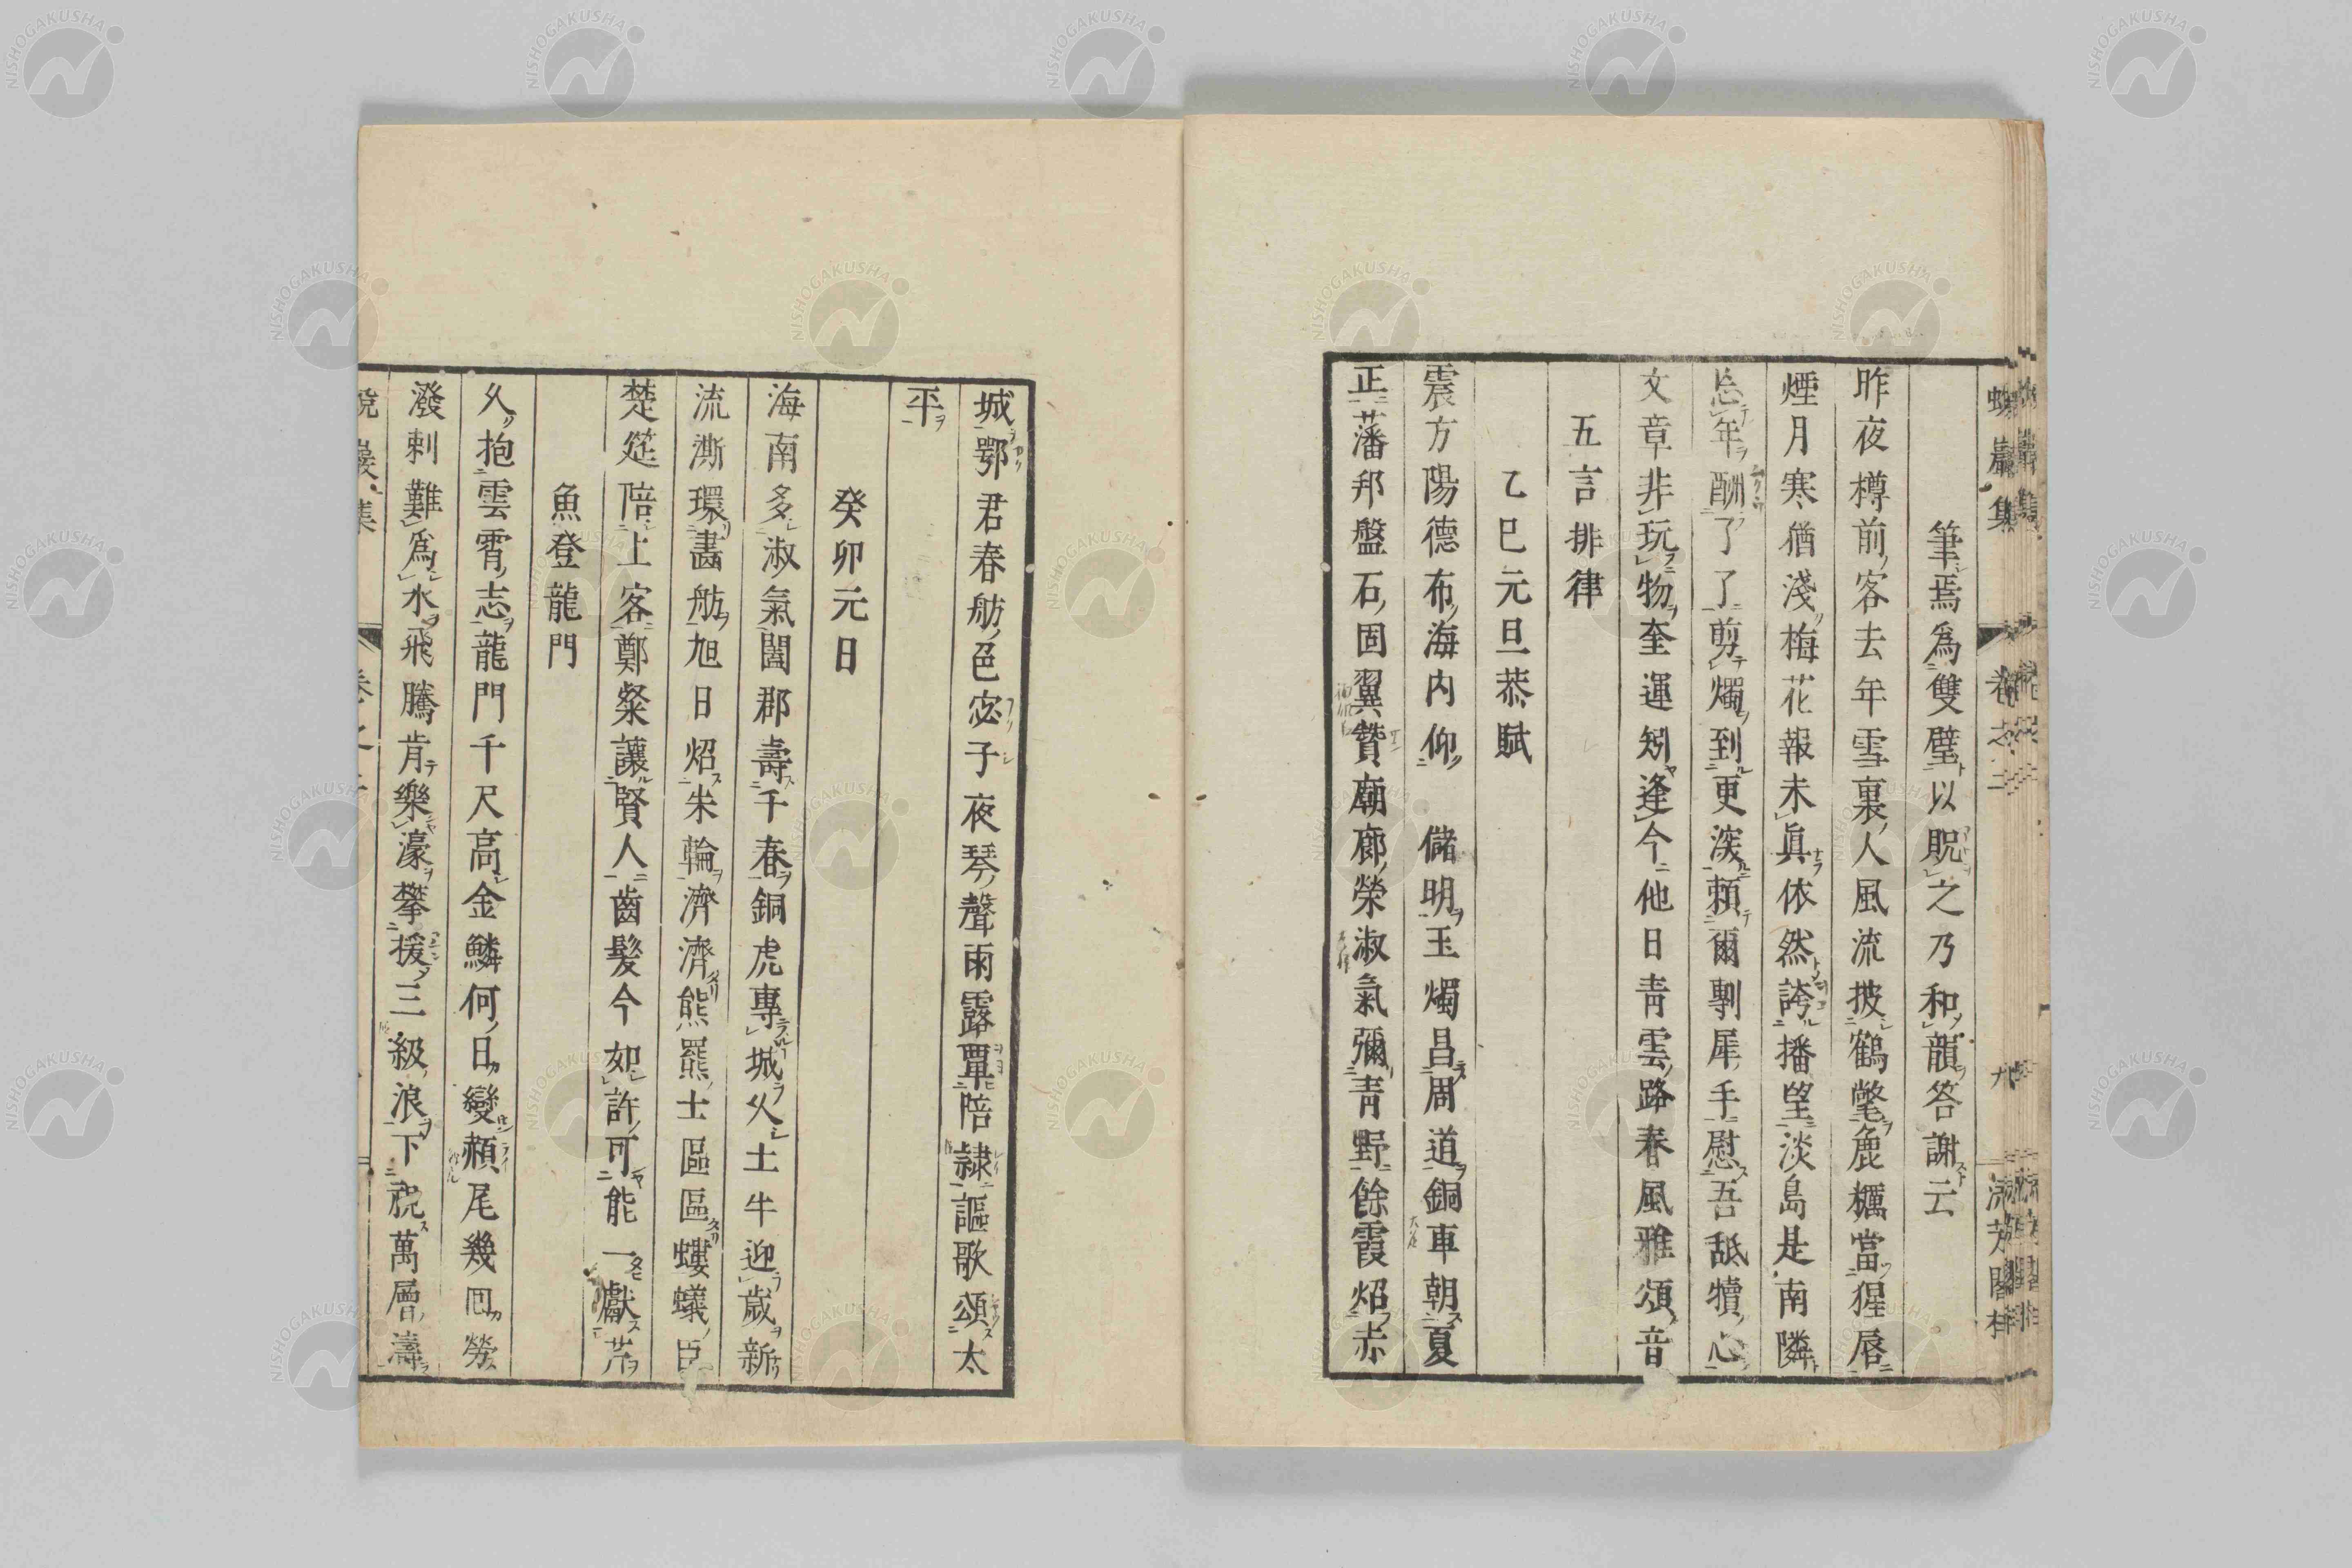 蛻巖集 卷之三 九
筆焉爲雙璧以貺之乃和韻答謝云
昨夜樽前客去年雪裏人風流披鶴氅鹿櫔當猩唇
煙月寒猶淺梅花報未眞依然誇播望淡島是南隣
忘年酬了了剪燭到更深賴爾剸犀手慰吾舐犢心
文章非玩物奎運矧逢今他日靑雲路春風雅頌音
五言排律
乙巳元旦恭賦
震方陽德布海内仰 儲明玉燭昌周道銅車朝夏
正藩邦盤石固翼贊廟廊榮淑氣彌靑野餘霞炤赤
城鄂君春舫邑宓子夜琴聲雨露覃陪隷謳歌頌太
平
癸卯元日
海南多淑氣闔郡壽千春銅虎專城久土牛迎歲新
流澌環畵舫旭日炤朱輪濟濟熊羆士區區螻蟻臣
楚筵陪上客鄭粲讓賢人齒髮今如許可能一獻芹
魚登龍門
久抱雲霄志龍門千尺高金鱗何日變赬尾幾囘勞
潑剌難爲水飛騰肯樂濠攀援三級浪下視萬層濤
NISHOGAKUSHA